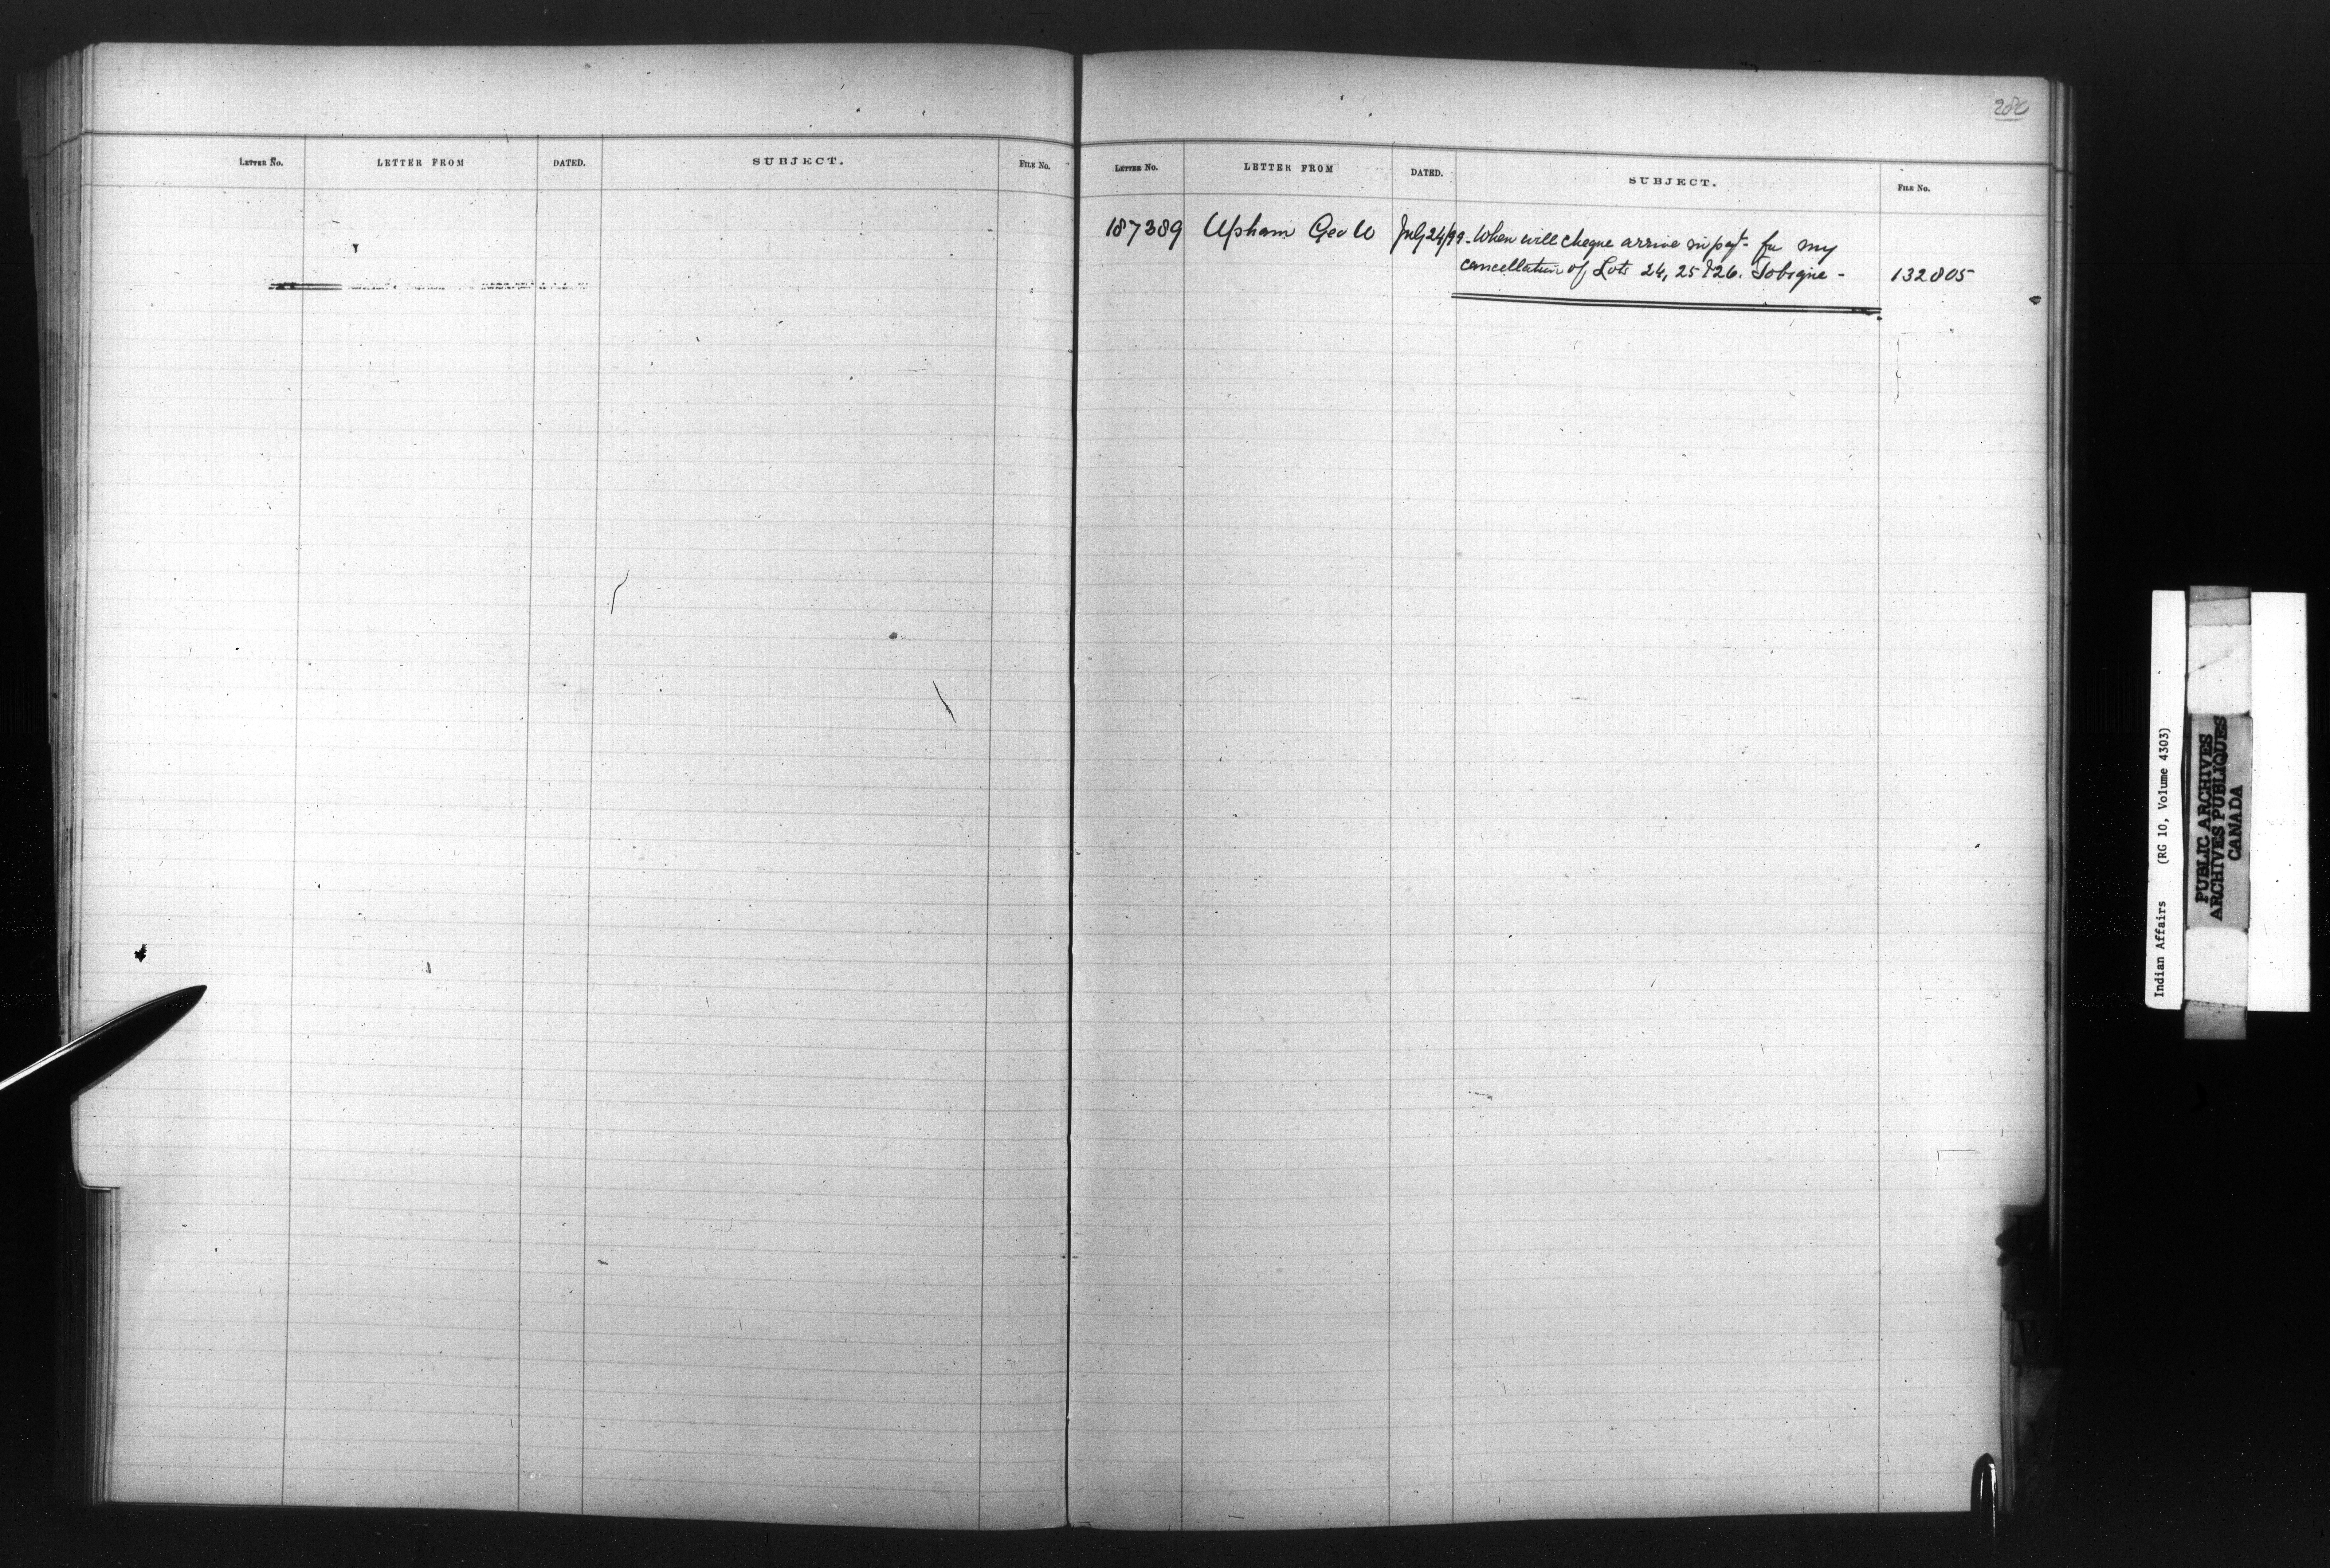 LETTER No. LETTER FROM DATED. SUBJECT. FILE No.
206
LETTER No. LETTER FROM DATED. SUBJECT. FILE No.
187389 Upham Geo W July 24/99 - When will cheque arrive in payt- for my
cancellation of Lots 24, 25 & 26. Tobique - 132805
Indian Affairs (RG 10, Volume 4303)
PUBLIC ARCHIVES
ARCHIVES PUBLIQUES
CANADA